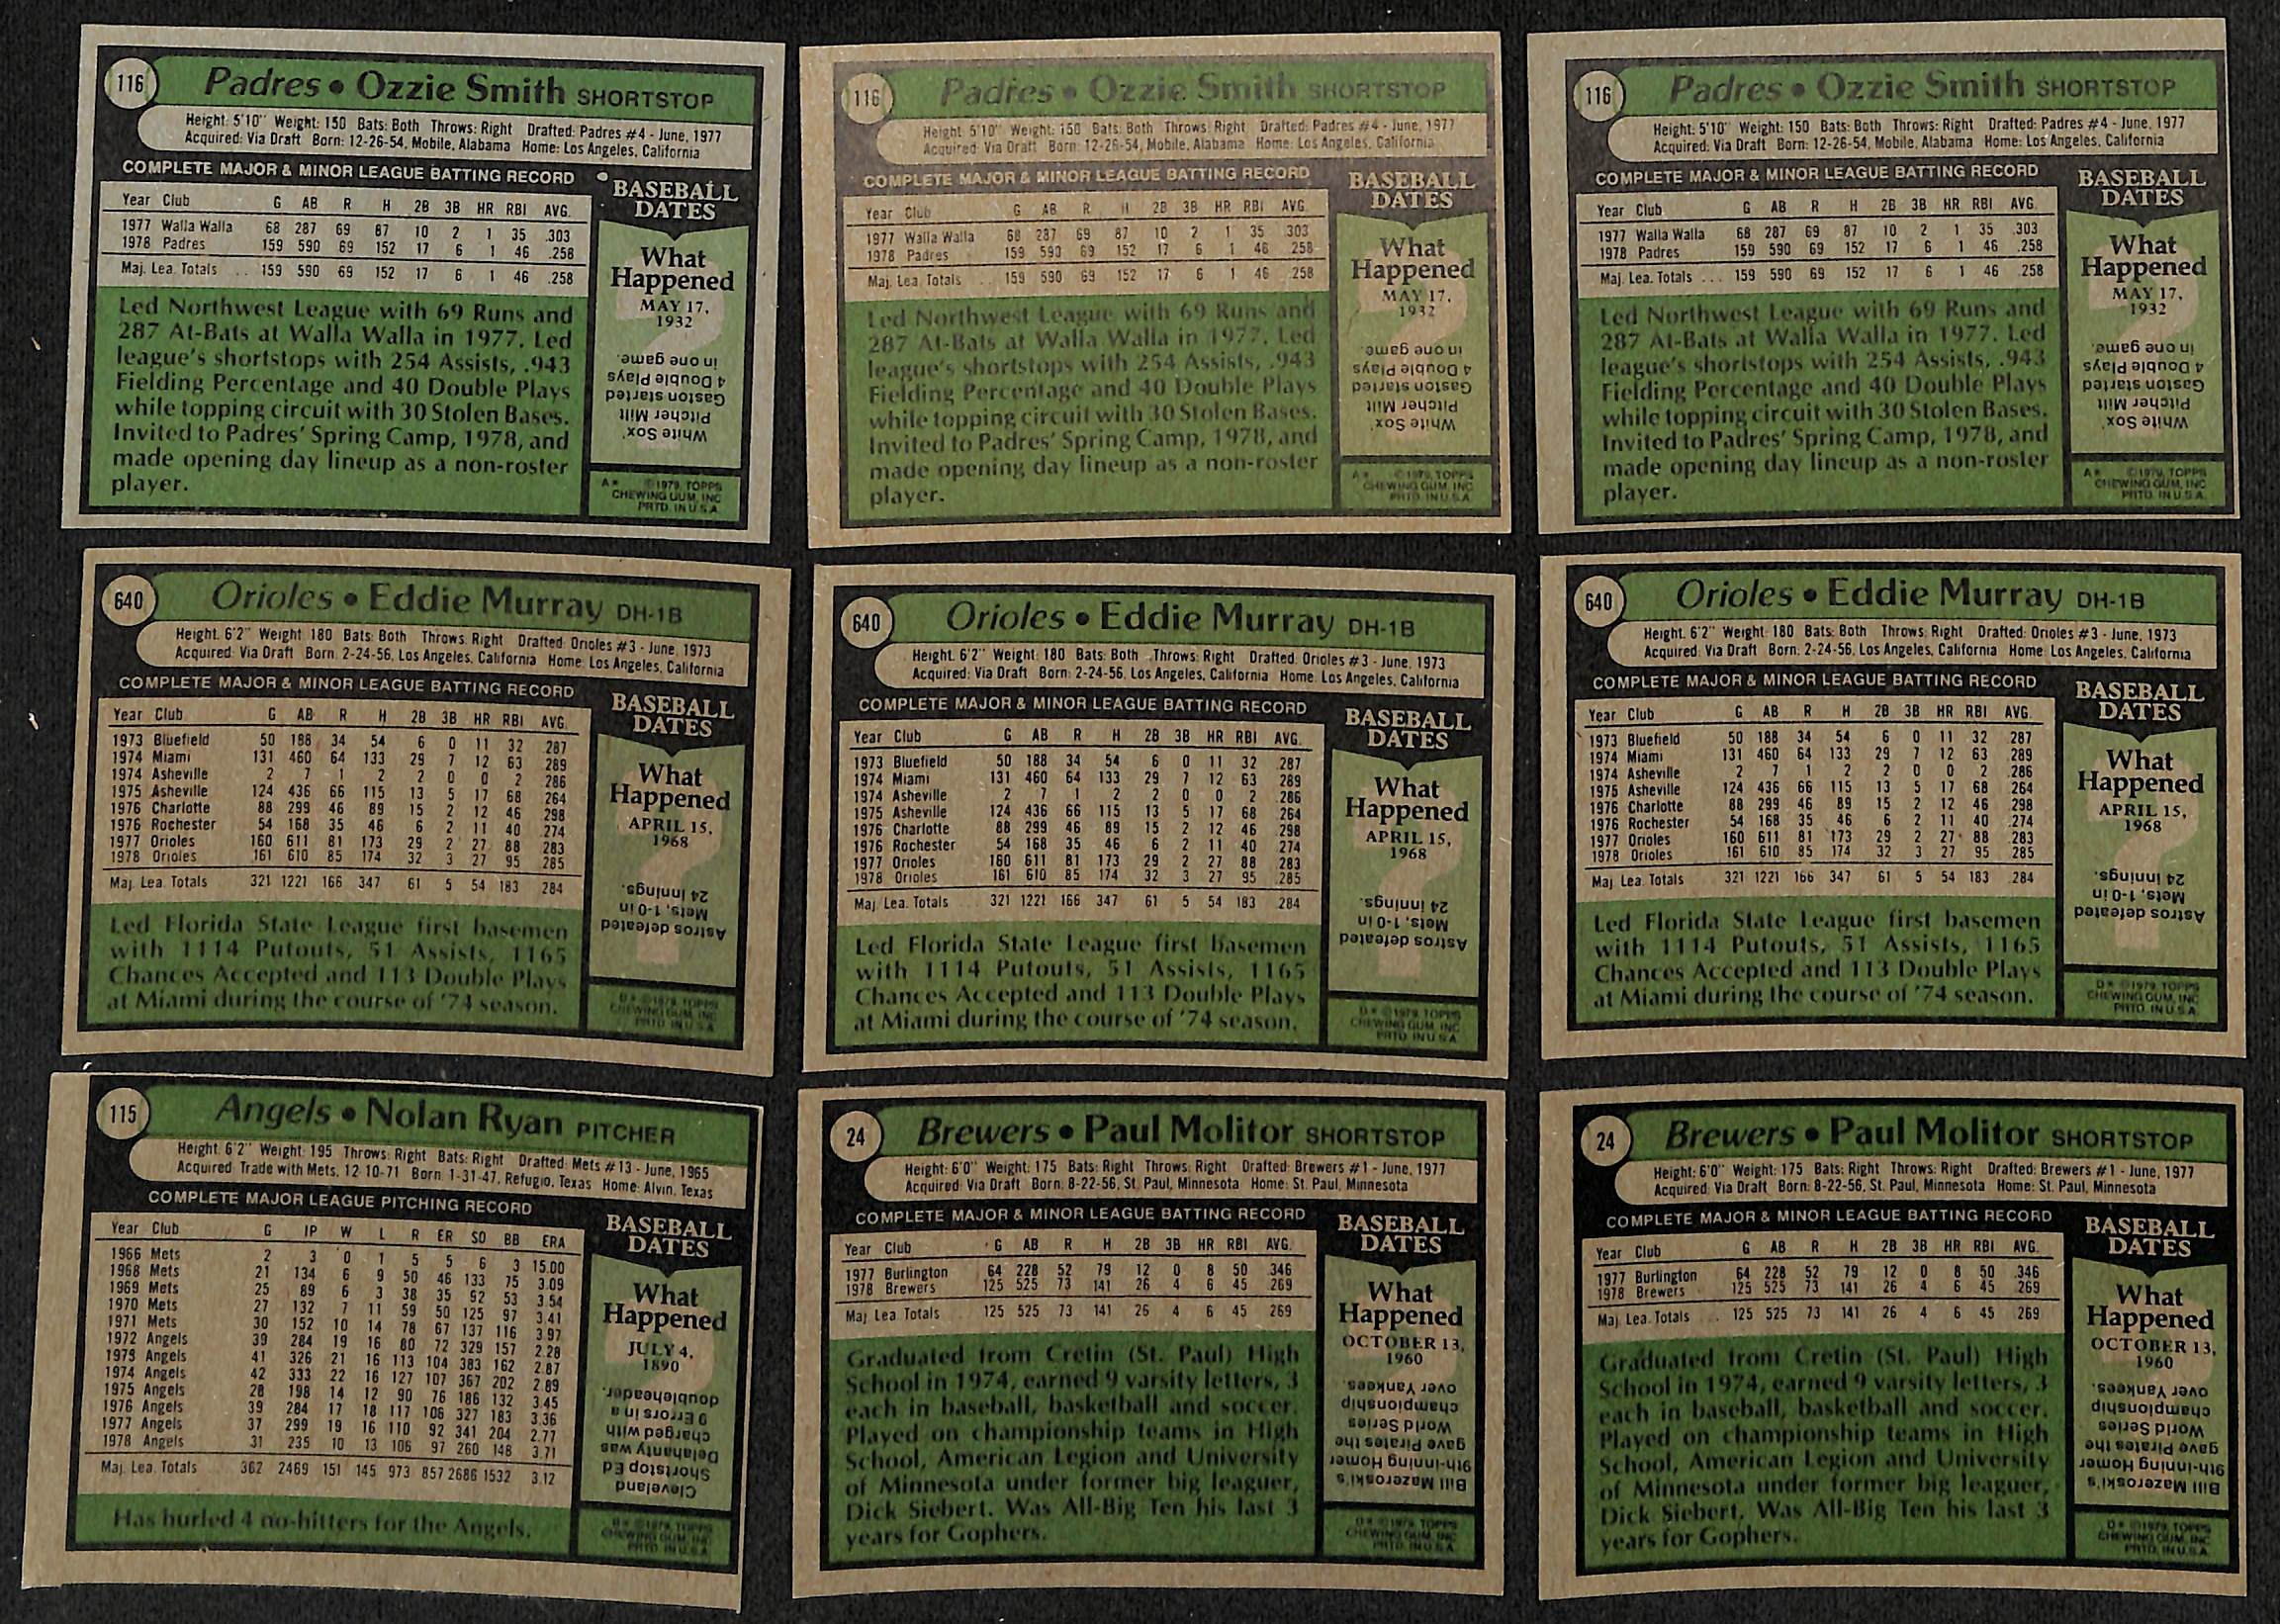 116
Padres • Ozzie Smith SHORTSTOP
Height: 5'10" Weight: 150 Bats: Both Throws: Right Drafted: Padres #4 - June, 1977
Acquired: Via Draft Born: 12-26-54, Mobile, Alabama Home: Los Angeles, California
COMPLETE MAJOR & MINOR LEAGUE BATTING RECORD
Year Club G AB R H 2B 3B HR RBI AVG.
1977 Walla Walla 68 287 69 87 10 2 1 35 .303
1978 Padres 159 590 69 152 17 6 1 46 .258
Maj. Lea. Totals .. 159 590 69 152 17 6 1 46 .258
Led Northwest League with 69 Runs and
287 At-Bats at Walla Walla in 1977. Led
league's shortstops with 254 Assists, .943
Fielding Percentage and 40 Double Plays
while topping circuit with 30 Stolen Bases.
Invited to Padres' Spring Camp, 1978, and
made opening day lineup as a non-roster
player.
BASEBALL
DATES
What
Happened
MAY 17,
1932
White Sox'
Pitcher Milt
Gaston started
4 Double Plays
in one game.
A* © 1979, TOPPS
CHEWING GUM, INC
PRTD. IN U.S.A.
116
Padres • Ozzie Smith SHORTSTOP
Height: 5'10" Weight: 150 Bats: Both Throws: Right Drafted: Padres #4 - June, 1977
Acquired: Via Draft Born: 12-26-54, Mobile, Alabama Home: Los Angeles, California
COMPLETE MAJOR & MINOR LEAGUE BATTING RECORD
Year Club G AB R H 2B 3B HR RBI AVG.
1977 Walla Walla 68 287 69 87 10 2 1 35 .303
1978 Padres 159 590 69 152 17 6 1 46 .258
Maj. Lea. Totals .. 159 590 69 152 17 6 1 46 .258
Led Northwest League with 69 Runs and
287 At-Bats at Walla Walla in 1977. Led
league's shortstops with 254 Assists, .943
Fielding Percentage and 40 Double Plays
while topping circuit with 30 Stolen Bases.
Invited to Padres' Spring Camp, 1978, and
made opening day lineup as a non-roster
player.
BASEBALL
DATES
What
Happened
MAY 17,
1932
White Sox'
Pitcher Milt
Gaston started
4 Double Plays
in one game.
A* © 1979, TOPPS
CHEWING GUM, INC
PRTD. IN U.S.A.
116
Padres • Ozzie Smith SHORTSTOP
Height: 5'10" Weight: 150 Bats: Both Throws: Right Drafted: Padres #4 - June, 1977
Acquired: Via Draft Born: 12-26-54, Mobile, Alabama Home: Los Angeles, California
COMPLETE MAJOR & MINOR LEAGUE BATTING RECORD
Year Club G AB R H 2B 3B HR RBI AVG.
1977 Walla Walla 68 287 69 87 10 2 1 35 .303
1978 Padres 159 590 69 152 17 6 1 46 .258
Maj. Lea. Totals ... 159 590 69 152 17 6 1 46 .258
Led Northwest League with 69 Runs and
287 At-Bats at Walla Walla in 1977. Led
league's shortstops with 254 Assists, .943
Fielding Percentage and 40 Double Plays
while topping circuit with 30 Stolen Bases.
Invited to Padres' Spring Camp, 1978, and
made opening day lineup as a non-roster
player.
BASEBALL
DATES
What
Happened
MAY 17,
1932
White Sox'
Pitcher Milt
Gaston started
4 Double Plays
in one game.
A* © 1979, TOPPS
CHEWING GUM, INC
PRTD. IN U.S.A.
640
Orioles • Eddie Murray DH-1B
Height: 6'2" Weight: 180 Bats: Both Throws: Right Drafted: Orioles #3 - June, 1973
Acquired: Via Draft Born: 2-24-56, Los Angeles, California Home: Los Angeles, California
COMPLETE MAJOR & MINOR LEAGUE BATTING RECORD
Year Club G AB R H 2B 3B HR RBI AVG.
1973 Bluefield 50 188 34 54 6 0 11 32 .287
1974 Miami 131 460 64 133 29 7 12 63 .289
1974 Asheville 2 7 1 2 2 0 0 2 .286
1975 Asheville 124 436 66 115 13 5 17 68 .264
1976 Charlotte 88 299 46 89 15 2 12 46 .298
1976 Rochester 54 168 35 46 6 2 11 40 .274
1977 Orioles 160 611 81 173 29 2 27 88 .283
1978 Orioles 161 610 85 174 32 3 27 95 .285
Maj. Lea. Totals 321 1221 166 347 61 5 54 183 .284
Led Florida State League first basemen
with 1114 Putouts, 51 Assists, 1165
Chances Accepted and 113 Double Plays
at Miami during the course of '74 season.
BASEBALL
DATES
What
Happened
APRIL 15,
1968
Astros defeated
Mets, 1-0 in
24 innings.
D* © 1979 TOPPS
CHEWING GUM, INC
PRTD IN U.S.A
640
Orioles • Eddie Murray DH-1B
Height: 6'2" Weight: 180 Bats: Both Throws: Right Drafted: Orioles #3 - June, 1973
Acquired: Via Draft Born: 2-24-56, Los Angeles, California Home: Los Angeles, California
COMPLETE MAJOR & MINOR LEAGUE BATTING RECORD
Year Club G AB R H 2B 3B HR RBI AVG.
1973 Bluefield 50 188 34 54 6 0 11 32 .287
1974 Miami 131 460 64 133 29 7 12 63 .289
1974 Asheville 2 7 1 2 2 0 0 2 .286
1975 Asheville 124 436 66 115 13 5 17 68 .264
1976 Charlotte 88 299 46 89 15 2 12 46 .298
1976 Rochester 54 168 35 46 6 2 11 40 .274
1977 Orioles 160 611 81 173 29 2 27 88 .283
1978 Orioles 161 610 85 174 32 3 27 95 .285
Maj. Lea. Totals 321 1221 166 347 61 5 54 183 .284
Led Florida State League first basemen
with 1114 Putouts, 51 Assists, 1165
Chances Accepted and 113 Double Plays
at Miami during the course of '74 season.
BASEBALL
DATES
What
Happened
APRIL 15,
1968
Astros defeated
Mets, 1-0 in
24 innings.
D* © 1979 TOPPS
CHEWING GUM, INC
PRTD IN U.S.A
640
Orioles • Eddie Murray DH-1B
Height: 6'2" Weight: 180 Bats: Both Throws: Right Drafted: Orioles #3 - June, 1973
Acquired: Via Draft Born: 2-24-56, Los Angeles, California Home: Los Angeles, California
COMPLETE MAJOR & MINOR LEAGUE BATTING RECORD
Year Club G AB R H 2B 3B HR RBI AVG.
1973 Bluefield 50 188 34 54 6 0 11 32 .287
1974 Miami 131 460 64 133 29 7 12 63 .289
1974 Asheville 2 7 1 2 2 0 0 2 .286
1975 Asheville 124 436 66 115 13 5 17 68 .264
1976 Charlotte 88 299 46 89 15 2 12 46 .298
1976 Rochester 54 168 35 46 6 2 11 40 .274
1977 Orioles 160 611 81 173 29 2 27 88 .283
1978 Orioles 161 610 85 174 32 3 27 95 .285
Maj. Lea. Totals 321 1221 166 347 61 5 54 183 .284
Led Florida State League first basemen
with 1114 Putouts, 51 Assists, 1165
Chances Accepted and 113 Double Plays
at Miami during the course of '74 season.
BASEBALL
DATES
What
Happened
APRIL 15,
1968
Astros defeated
Mets, 1-0 in
24 innings.
D* © 1979 TOPPS
CHEWING GUM, INC
PRTD IN U.S.A
115
Angels • Nolan Ryan PITCHER
Height: 6'2" Weight: 195 Throws: Right Bats: Right Drafted: Mets #13 - June, 1965
Acquired: Trade with Mets, 12-10-71 Born: 1-31-47, Refugio, Texas Home: Alvin, Texas
COMPLETE MAJOR LEAGUE PITCHING RECORD
Year Club G IP W L R ER SO BB ERA
1966 Mets 2 3 0 1 5 5 6 3 15.00
1968 Mets 21 134 6 9 50 46 133 75 3.09
1969 Mets 25 89 6 3 38 35 92 53 3.54
1970 Mets 27 132 7 11 59 50 125 97 3.41
1971 Mets 30 152 10 14 78 67 137 116 3.97
1972 Angels 39 284 19 16 80 72 329 157 2.28
1973 Angels 41 326 21 16 113 104 383 162 2.87
1974 Angels 42 333 22 16 127 107 367 202 2.89
1975 Angels 28 198 14 12 90 76 186 132 3.45
1976 Angels 39 284 17 18 117 106 327 183 3.36
1977 Angels 37 299 19 16 110 92 341 204 2.77
1978 Angels 31 235 10 13 106 97 260 148 3.71
Maj. Lea. Totals 362 2469 151 145 973 857 2686 1532 3.12
Has hurled 4 no-hitters for the Angels.
BASEBALL
DATES
What
Happened
JULY 4,
1890
Cleveland
Shortstop Ed
Delahanty was
charged with
9 Errors in a
doubleheader.
D* © 1979 TOPPS
CHEWING GUM, INC
PRTD IN U.S.A
24
Brewers • Paul Molitor SHORTSTOP
Height: 6'0" Weight: 175 Bats: Right Throws: Right Drafted: Brewers #1 - June, 1977
Acquired: Via Draft Born: 8-22-56, St. Paul, Minnesota Home: St. Paul, Minnesota
COMPLETE MAJOR & MINOR LEAGUE BATTING RECORD
Year Club G AB R H 2B 3B HR RBI AVG.
1977 Burlington 64 228 52 79 12 0 8 50 .346
1978 Brewers 125 525 73 141 26 4 6 45 .269
Maj. Lea. Totals 125 525 73 141 26 4 6 45 .269
Graduated from Cretin (St. Paul) High
School in 1974, earned 9 varsity letters, 3
each in baseball, basketball and soccer.
Played on championship teams in High
School, American Legion and University
of Minnesota under former big leaguer,
Dick Siebert. Was All-Big Ten his last 3
years for Gophers.
BASEBALL
DATES
What
Happened
OCTOBER 13,
1960
Bill Mazeroski's
9th-inning Homer
gave Pirates the
World Series
championship
over Yankees.
D* © 1979 TOPPS
CHEWING GUM, INC
PRTD. IN U.S.A.
24
Brewers • Paul Molitor SHORTSTOP
Height: 6'0" Weight: 175 Bats: Right Throws: Right Drafted: Brewers #1 - June, 1977
Acquired: Via Draft Born: 8-22-56, St. Paul, Minnesota Home: St. Paul, Minnesota
COMPLETE MAJOR & MINOR LEAGUE BATTING RECORD
Year Club G AB R H 2B 3B HR RBI AVG.
1977 Burlington 64 228 52 79 12 0 8 50 .346
1978 Brewers 125 525 73 141 26 4 6 45 .269
Maj. Lea. Totals 125 525 73 141 26 4 6 45 .269
Graduated from Cretin (St. Paul) High
School in 1974, earned 9 varsity letters, 3
each in baseball, basketball and soccer.
Played on championship teams in High
School, American Legion and University
of Minnesota under former big leaguer,
Dick Siebert. Was All-Big Ten his last 3
years for Gophers.
BASEBALL
DATES
What
Happened
OCTOBER 13,
1960
Bill Mazeroski's
9th-inning Homer
gave Pirates the
World Series
championship
over Yankees.
D* © 1979 TOPPS
CHEWING GUM, INC
PRTD. IN U.S.A.